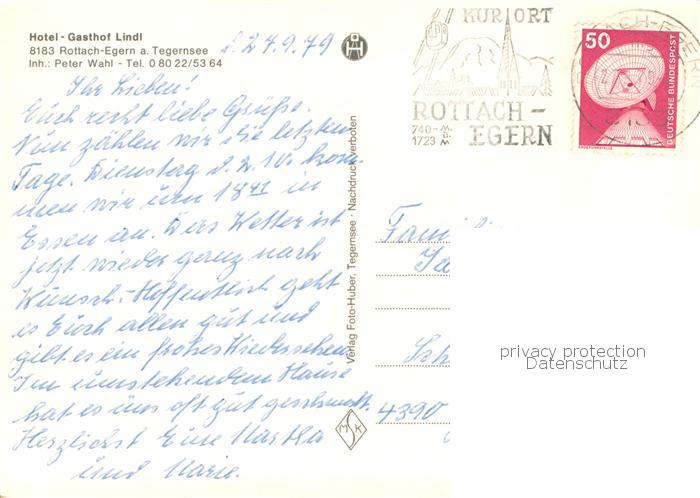 Hotel - Gasthof Lindl
8183 Rottach-Egern a. Tegernsee
Inh.: Peter Wahl - Tel. 0 80 22/53 64
d. 27.9.79
Ihr Lieben!
Euch recht liebe Grüße.
Nun zählen wir die letzten
Tage. Dienstag d. 2. 10. kom-
men wir um 18 41 in
Essen an. Das Wetter ist
jetzt wieder ganz nach
Wunsch. Hoffentlich geht
es Euch allen gut und
gibt es ein frohes Wiedersehen.
Im umstehenden Hause
hat es uns oft gut geschmeckt.
Herzlichst Eure Martha
und Marie.
Verlag Foto-Huber, Tegernsee · Nachdruck verboten
MSK
KURORT
ROTTACH-
EGERN
740-
1723 m
50
DEUTSCHE BUNDESPOST
ERDEFUNKSTELLE
Fami
4390
privacy protection
Datenschutz